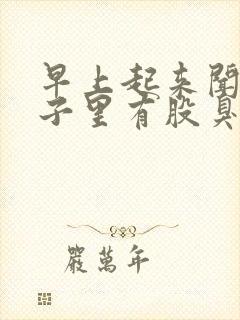 早上起来闻
子里有股臭
嚴萬年